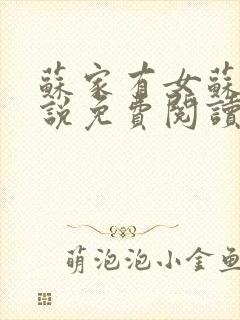 蘇家有女蘇
說免費閱讀
萌泡泡小金魚